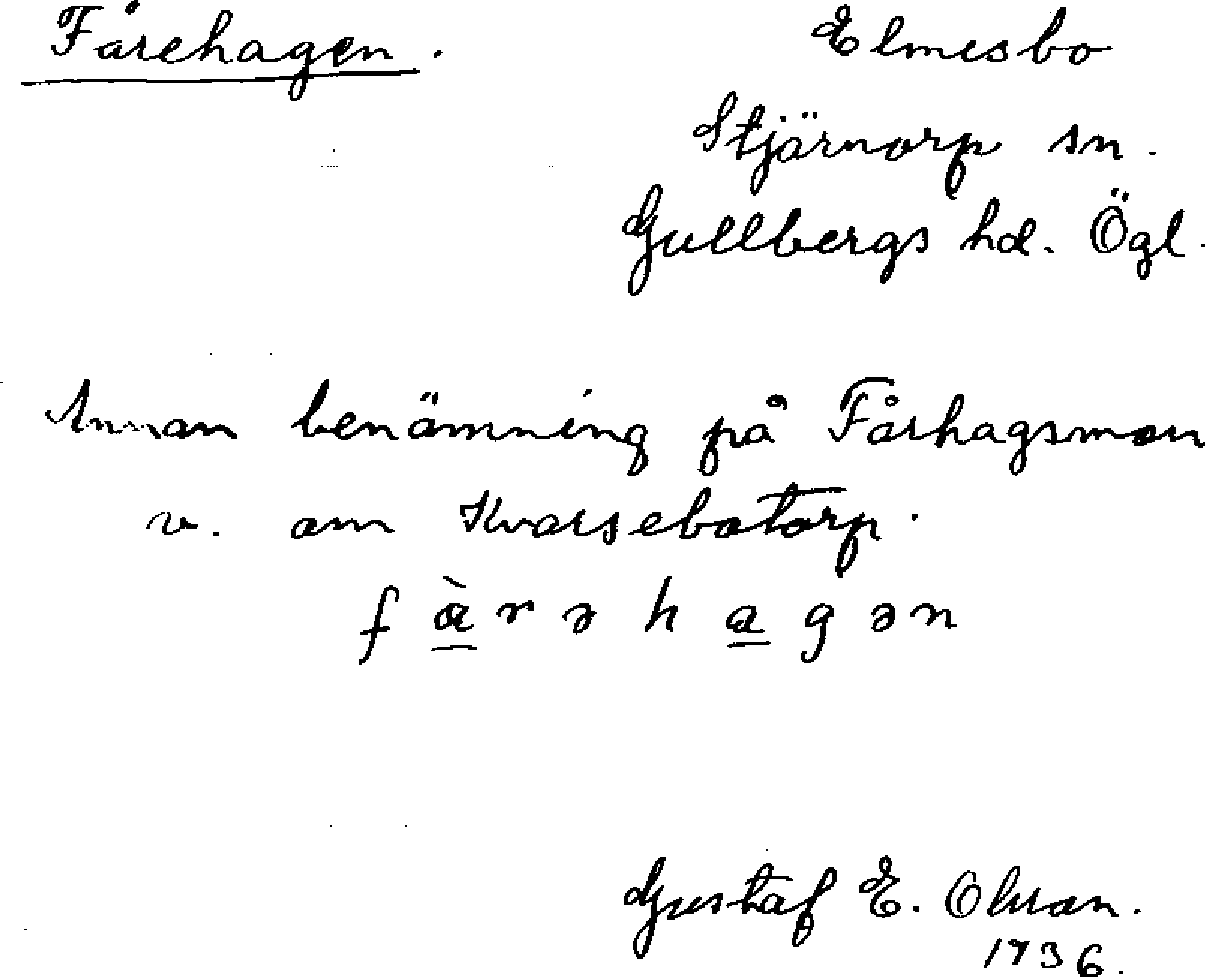 Fårehagen. Elmesbo
Stjärnorp sn.
Gullbergs hd. Ögl.
Annan benämning på Fårhagsmon
v. om Kvarsebotorp.
f à r ə h a g ə n
Gustaf E. Olsson.
1936.